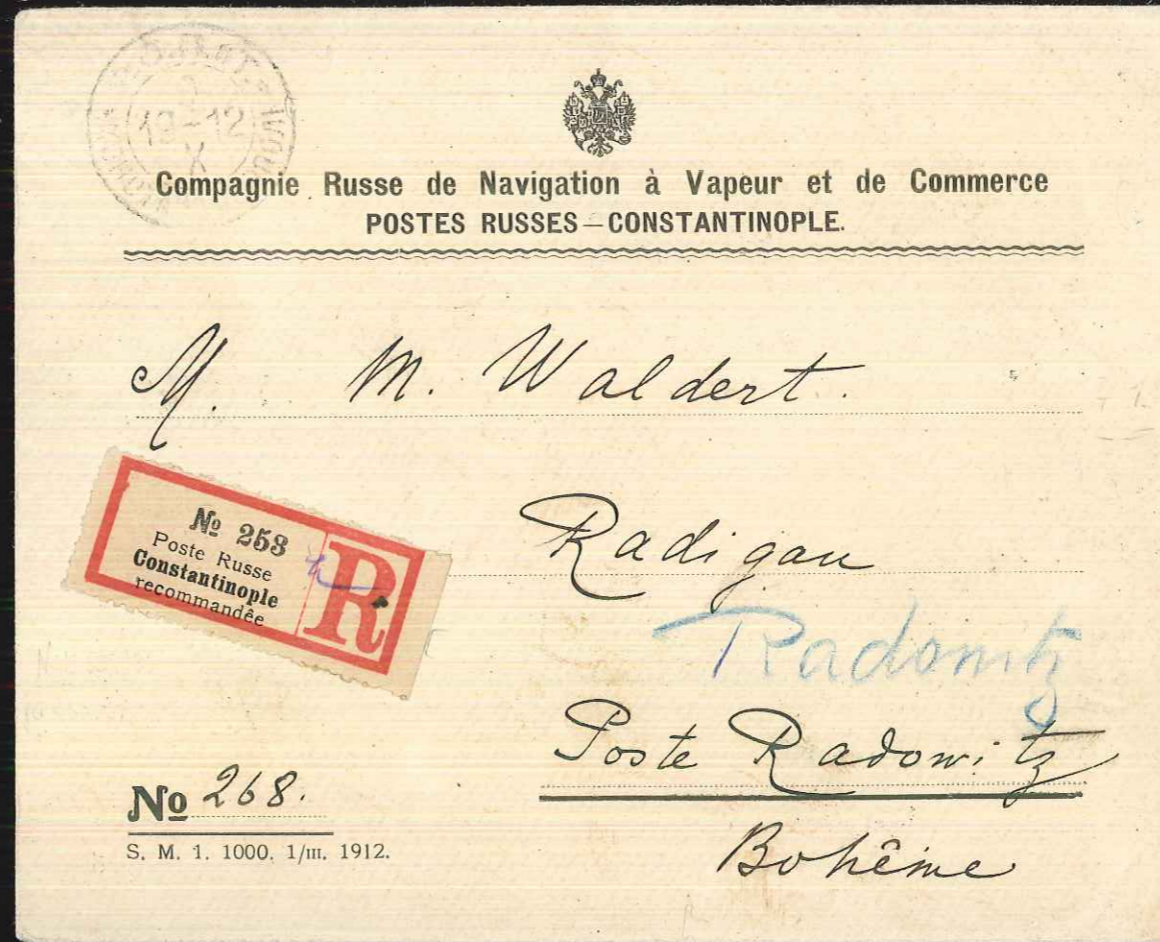 19-12
X
Compagnie Russe de Navigation à Vapeur et de Commerce
POSTES RUSSES—CONSTANTINOPLE.
M. M. Waldert.
№ 253
Poste Russe
Constantinople
recommandée
R
Radigau
Radonitz
Poste Radowitz
№ 268.
S. M. 1. 1000. 1/III. 1912.
Bohême